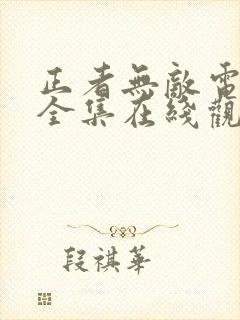 正者無敵電
全集在綫觀
段祺華